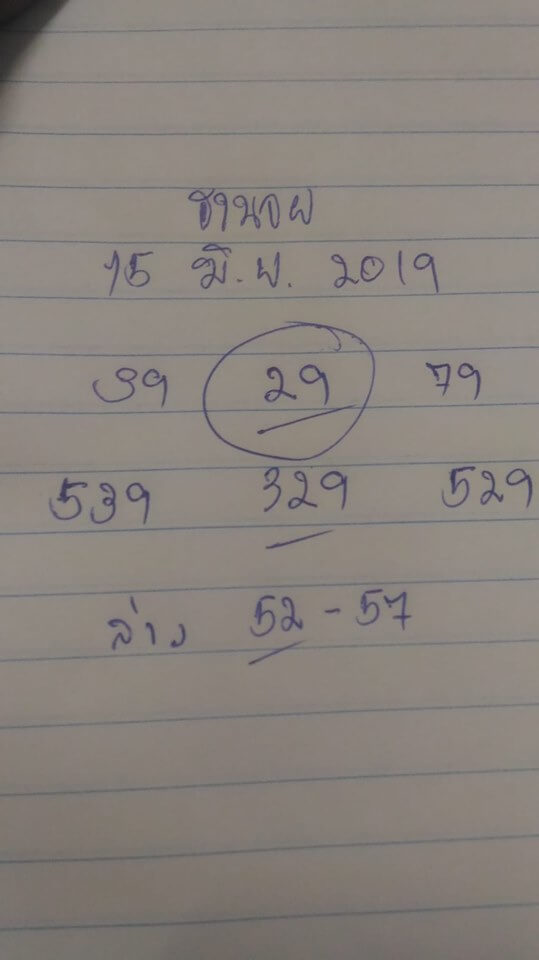 ฮานอย
15 มิ.ย. 2019
39 29 79
539 329 529
ล่าง 52 - 57